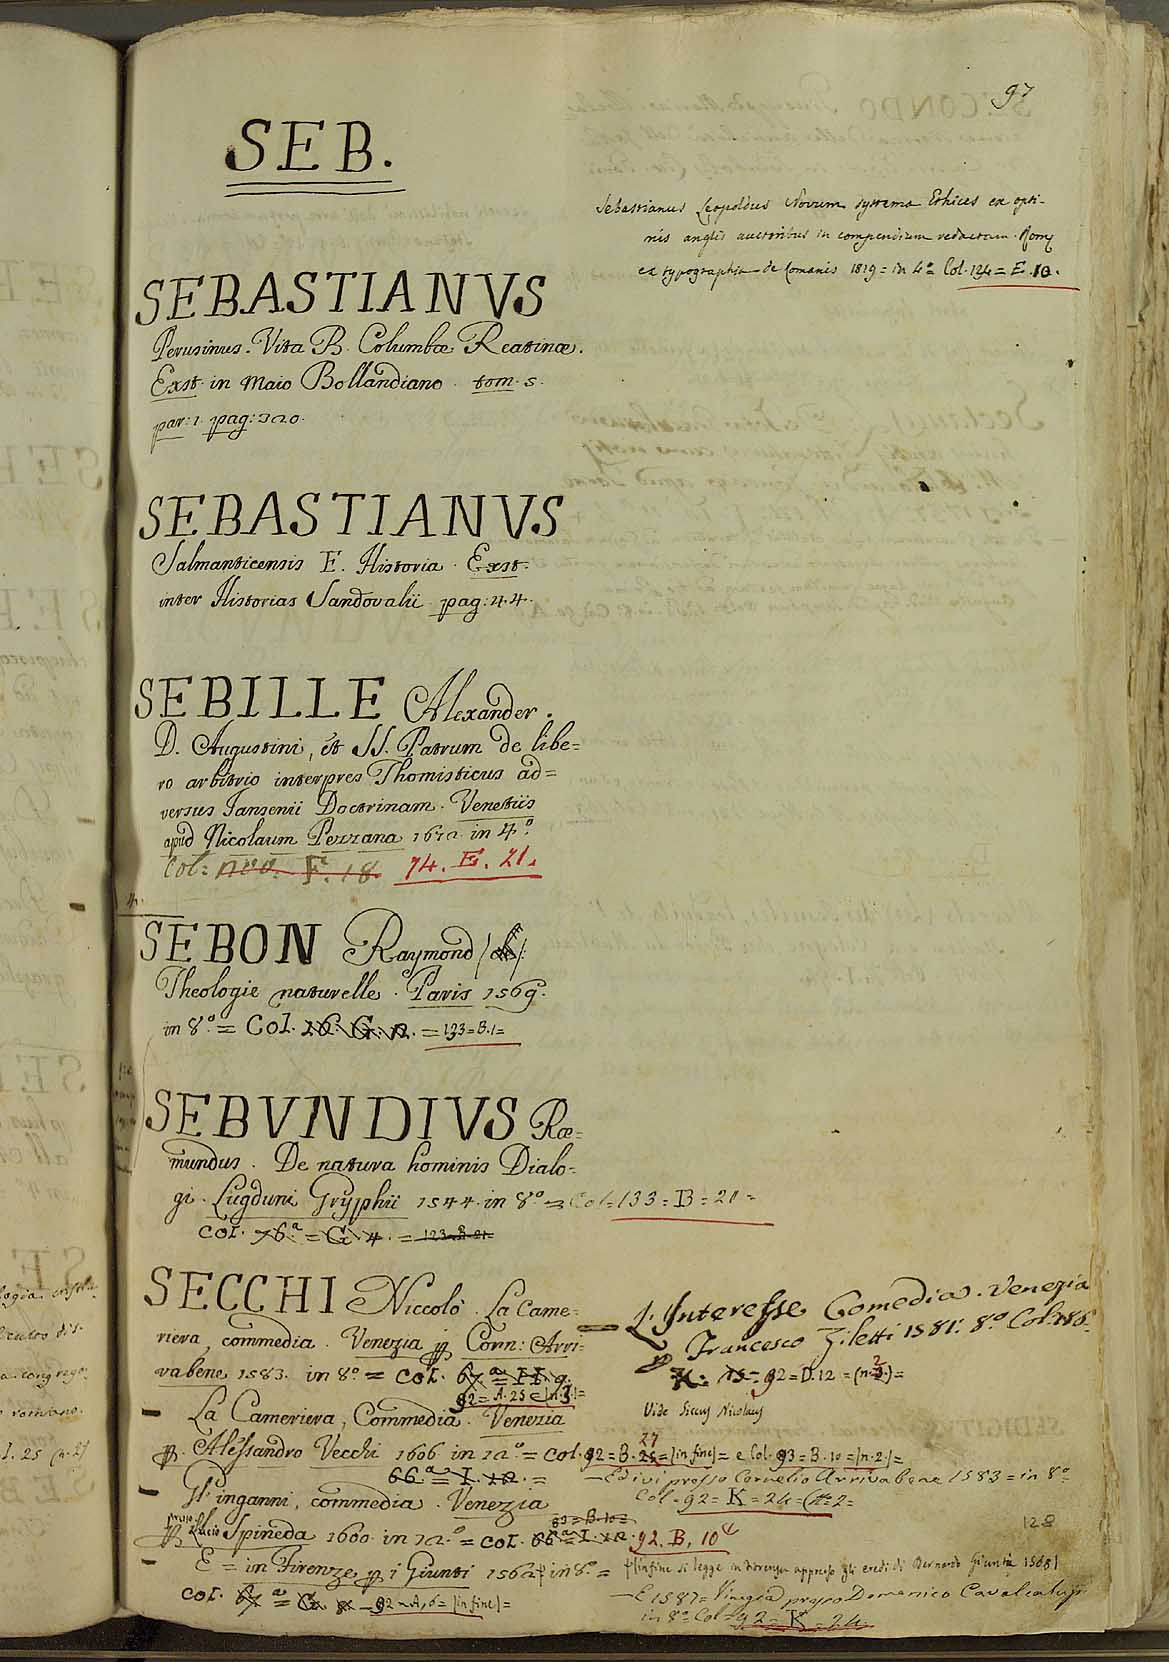 97
SEB.
Sebastianus Leopoldus Novum systema Ethices ex opti-
mis anglis auctoribus in compendium redactum. Romę
ex typographia de Romanis 1819 = in 4.º Col. 124 = E. 10.
SEBASTIANVS
Perusinus. Vita B. Columbæ Reatinæ.
Exst. in Maio Bollandiano. tom. 5.
par: 1. pag: 320.
SEBASTIANVS
Salmanticensis E. Historia. Exst.
inter Historias Sandovalii. pag: 44.
SEBILLE Alexander.
D. Augustini, et SS. Patrum de libe=
ro arbitrio interpres Thomisticus ad=
versus Jansenii Doctrinam. Venetiis
apud Nicolaum Pezzana 1672 in 4.º
Col: nov. F. 18. 74. E. 21.
SEBON Raymond
Theologie naturelle. Paris 1569.
in 8.º = Col. 26. G. n. = 123=B.1=
SEBVNDIVS Ræ=
mundus. De natura hominis Dialo=
gi. Lugduni Gryphii 1544. in 8.º = Col=133=B=20=
Col. 76.ª = G. 4. =
SECCHI Niccolò. La Came=
riera, commedia. Venezia p Corn: Arri=
vabene 1583. in 8.º = Col. 67.ª = I I. 9.
92=A.25=(n.3)=
— La Cameriera, Commedia. Venezia
p. Alessandro Vecchi 1606 in 12.º = Col. 92=B.27=(in fine)= e Col. 93=B.10=(n.2)=
66.ª = I. 12. =
— Gl'inganni, commedia. Venezia
p Lucio Spineda 1600. in 12.º = Col. 66.ª = I. 12. 92. B, 10
— E = in Firenze p i Giunti 1562 in 8.º =
Col. 67.ª = G = 92=A,6=(in fine)=
— L'Interesse Comedia. Venezia
p Francesco Ziletti 1581. 8.º Col.
92=D.12=(n.2)=
Vide Siccus Nicolaus
— Ed ivi presso Cornelio Arrivabene 1583 = in 8.º
Col=92=K=24=(n=2=
128
(infine si legge in Fiorenza appresso gli eredi di Bernardo Giunti 1568)
— E 1587= Vinegia presso Domenico Cavalcalupo
in 8.º Col=92=K=24.